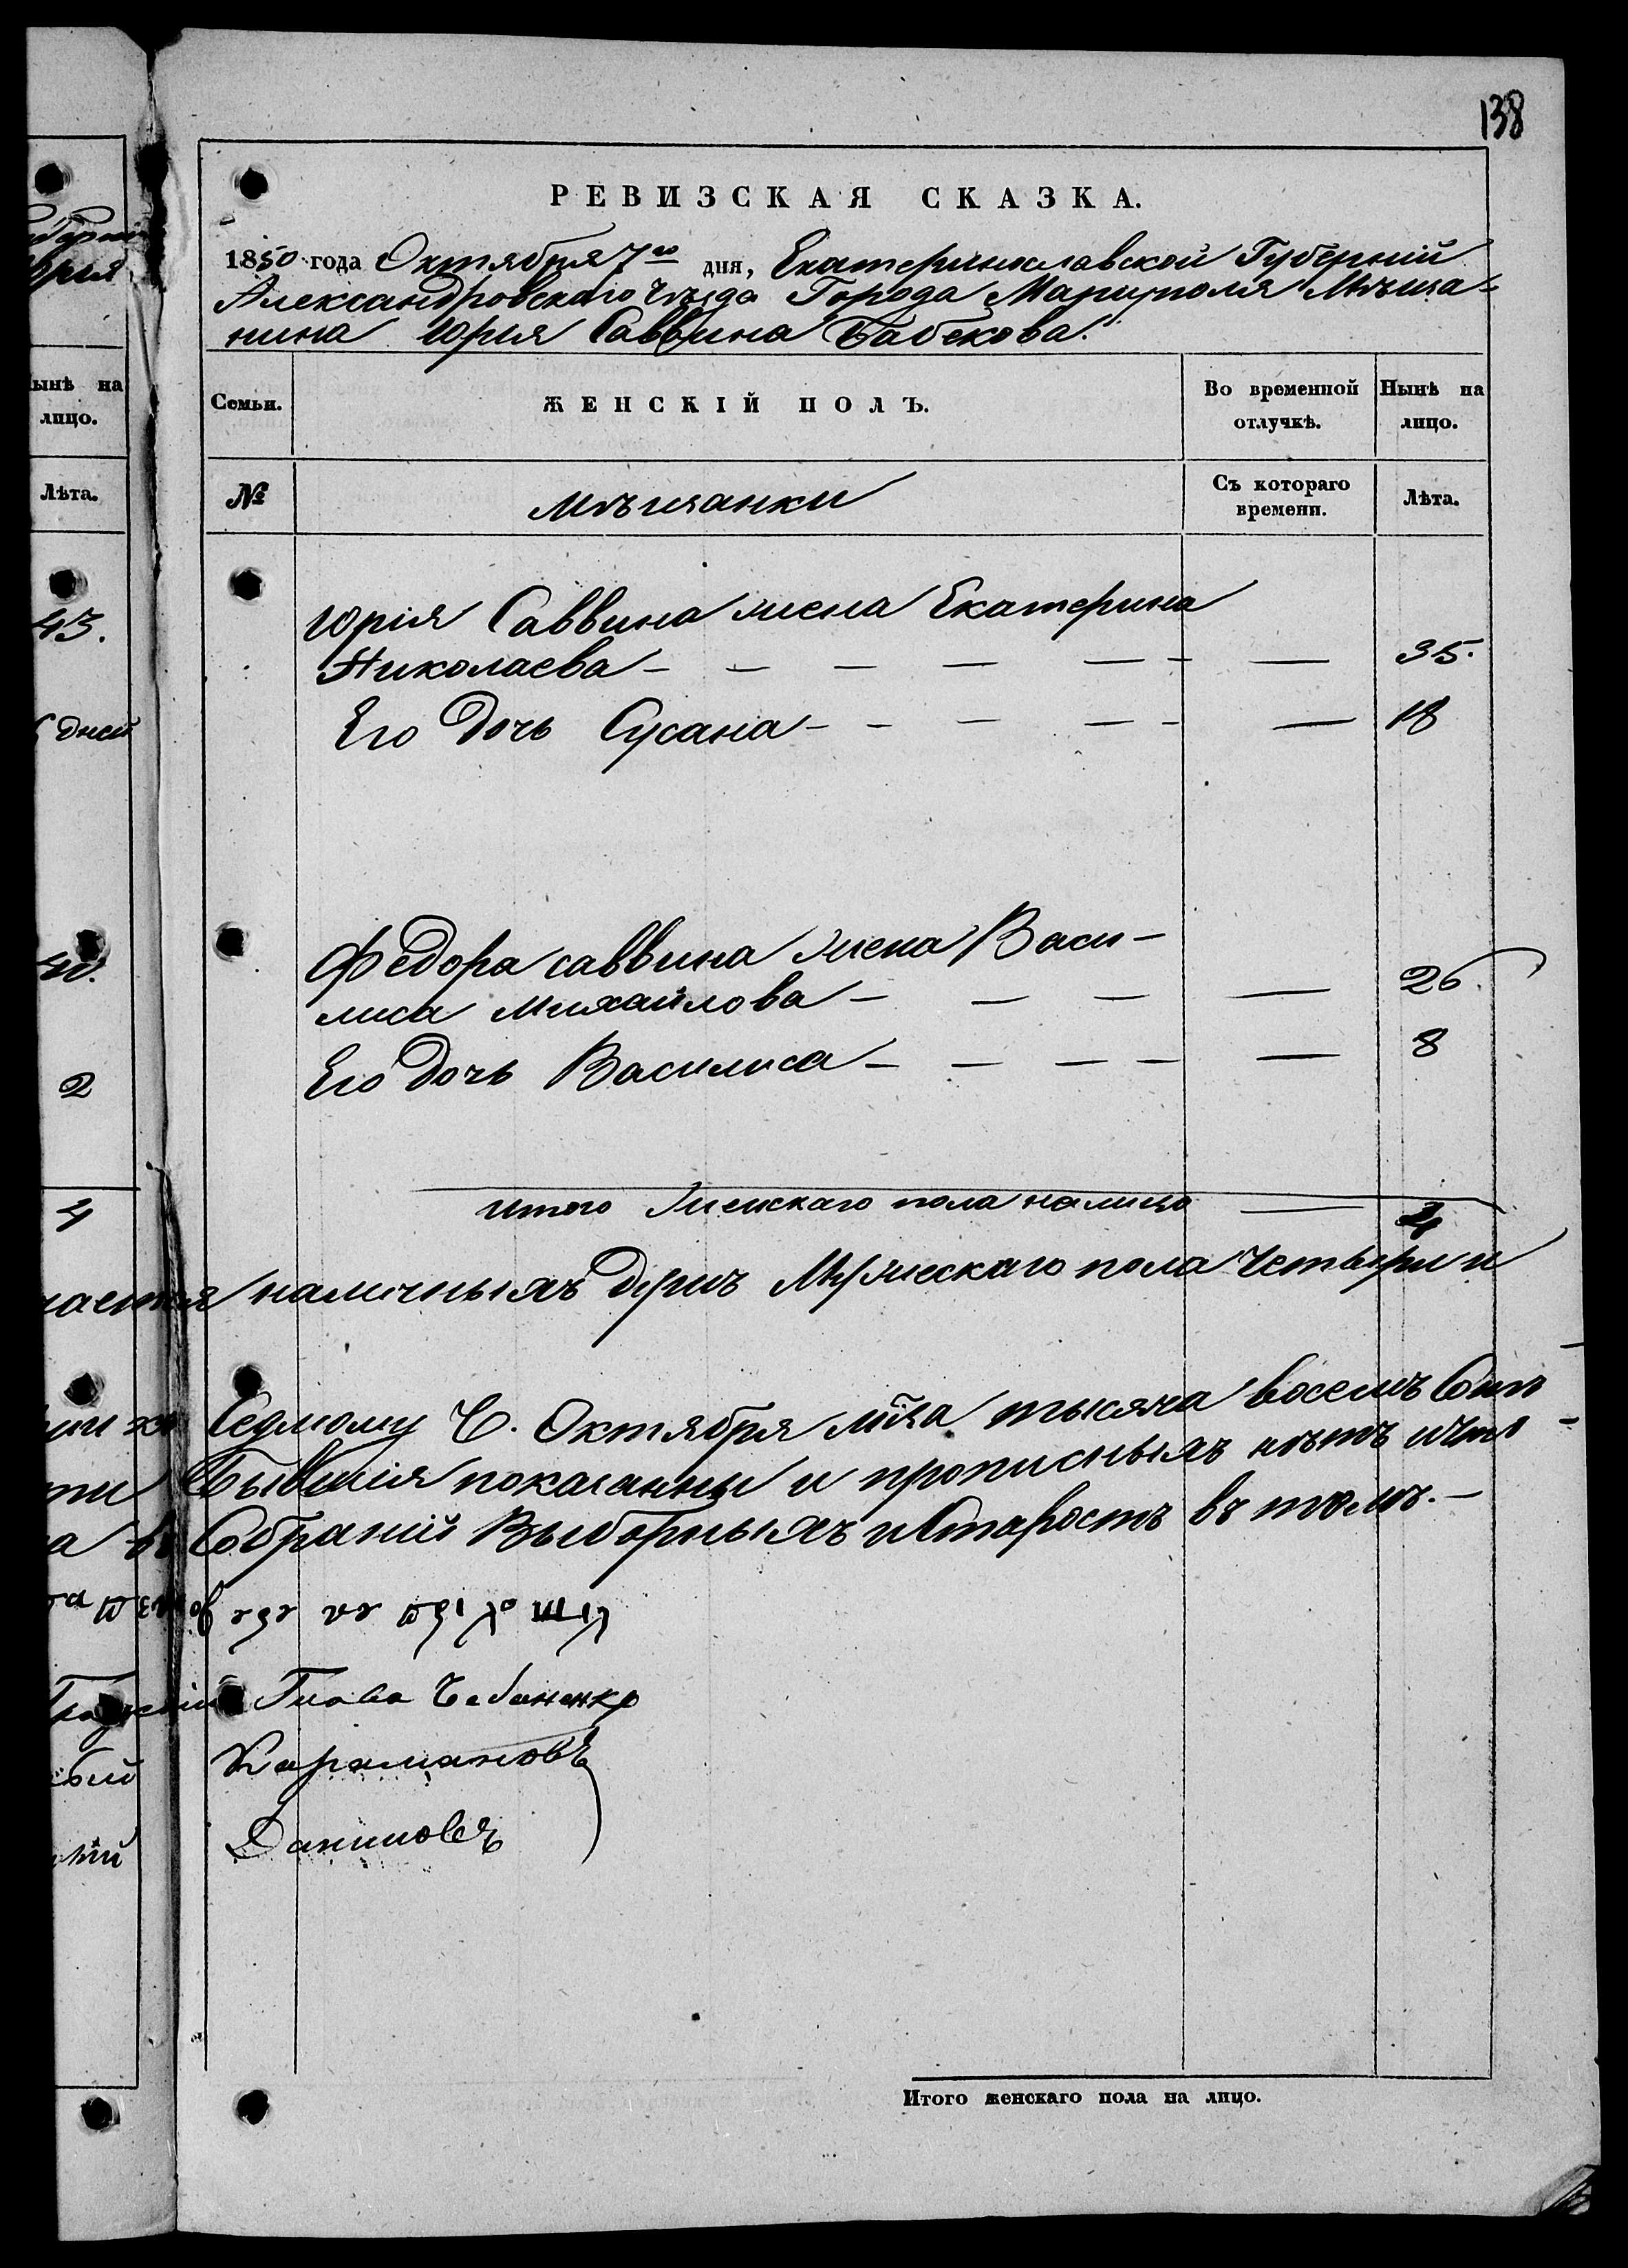 138
РЕВИЗСКАЯ СКАЗКА.
1850 года Октября 7го дня, Екатеринославской Губерніи
Александровскаго Уѣзда Города Маріуполя Мѣща-
нина Юрія Саввина Бабекова.
Семьи. ЖЕНСКІЙ ПОЛЪ. Во временной отлучкѣ. Нынѣ на лицо.
№ мѣщанки Съ котораго времени. Лѣта.
Юрія Саввина жена Екатерина
Николаева - — — — — - — 35.
Его дочь Сусана - - — — - — 18
Федора Саввина жена Васи-
лиса Михайлова - — — — 26.
Его дочь Василиса - — — — — 8
итого женскаго пола налицо — 4
наличныхъ душъ Мужескаго пола Четыри и
Седмому Ч. Октября мца тысяча восемъ Сотъ
Бывшія показанны и прописныхъ нѣтъ
Собраній Выборныхъ и Старостъ въ томъ.—
Глава Чебаненко
Карамановъ
Даниловъ
Итого женскаго пола на лицо.
ынѣ на
лицо.
Лѣта.
43.
дней
40.
2
4